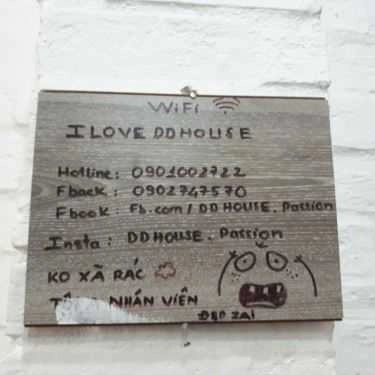 WiFi
I LOVE DDHOUSE
Hotline: 0901002722
Fback: 0902747570
Fbook: Fb.com/DDHOUSE.Passion
Insta: DDHOUSE.Passion
KO XÃ RÁC
NHÂN VIÊN
ĐẸP ZAI